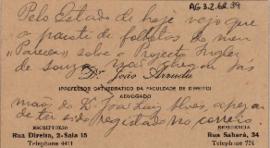 AG.3.2.68.39
Pelo Estado de hoje vejo que
o pacote de folhetos do meu
"Parecer" sobre o Projecto Inglez
de Souza não chegou ás
Dr. João Arruda
PROFESSOR CATHEDRATICO DA FACULDADE DE DIREITO
ADVOGADO
mãos do Dr. José Luiz Alves, apezar
de ter sido registado no correio.
ESCRIPTORIO
Rua Direita, 2-Sala 15
Telephone
RESIDENCIA
Rua Sabará, 34
Telephone